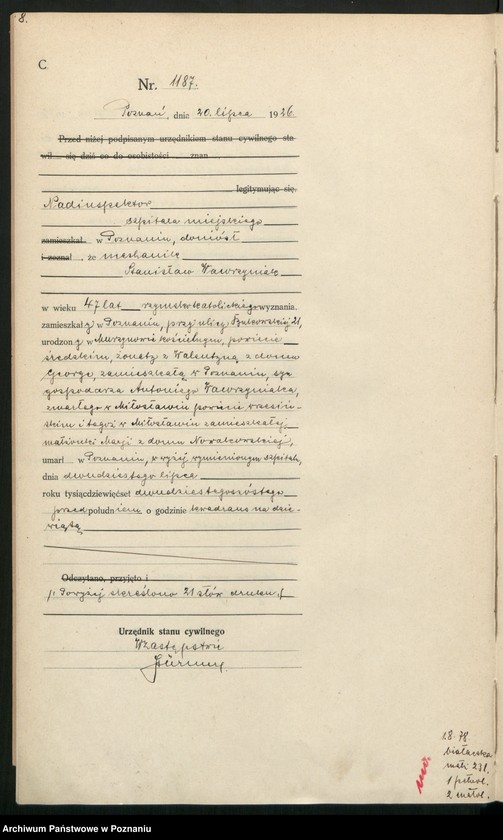 8.
C
Nr. 1187.
Poznań, dnia 20. lipca 1926.
Przed niżej podpisanym urzędnikiem stanu cywilnego sta-
wił się dziś co do osobistości znan
legitymując się
Nadinspektor
szpitala miejskiego
zamieszkał w Poznaniu, doniósł
i zeznał, że mechanik
Stanisław Wawrzyniak
w wieku 47 lat rzymskokatolickiego wyznania,
zamieszkały w Poznaniu, przy ulicy 21,
urodzony w Murzynowie kościelnym, powiecie
średzkim, żonaty z Walentyną z domu
George, zamieszkałą w Poznaniu, syn
gospodarza Antoniego Wawrzyniaka,
zmarłego w Miłosławiu powiecie wrzesiń-
skim i tegoż w Miłosławiu zamieszkałej
małżonki Marji z domu Nowakowskiej,
umarł w Poznaniu, w wyżej wymienionym szpitalu,
dnia dwudziestego lipca
roku tysiącdziewięćset dwudziestegoszóstego
przed południem o godzinie kwadrans na dzie-
wiątą
Odczytano, przyjęto i
/: Powyżej skreślono 21 słów druku. /
Urzędnik stanu cywilnego
W zastępstwie
18.78.
białaczka
małż. 231.
Archiwum Państwowe w Poznaniu